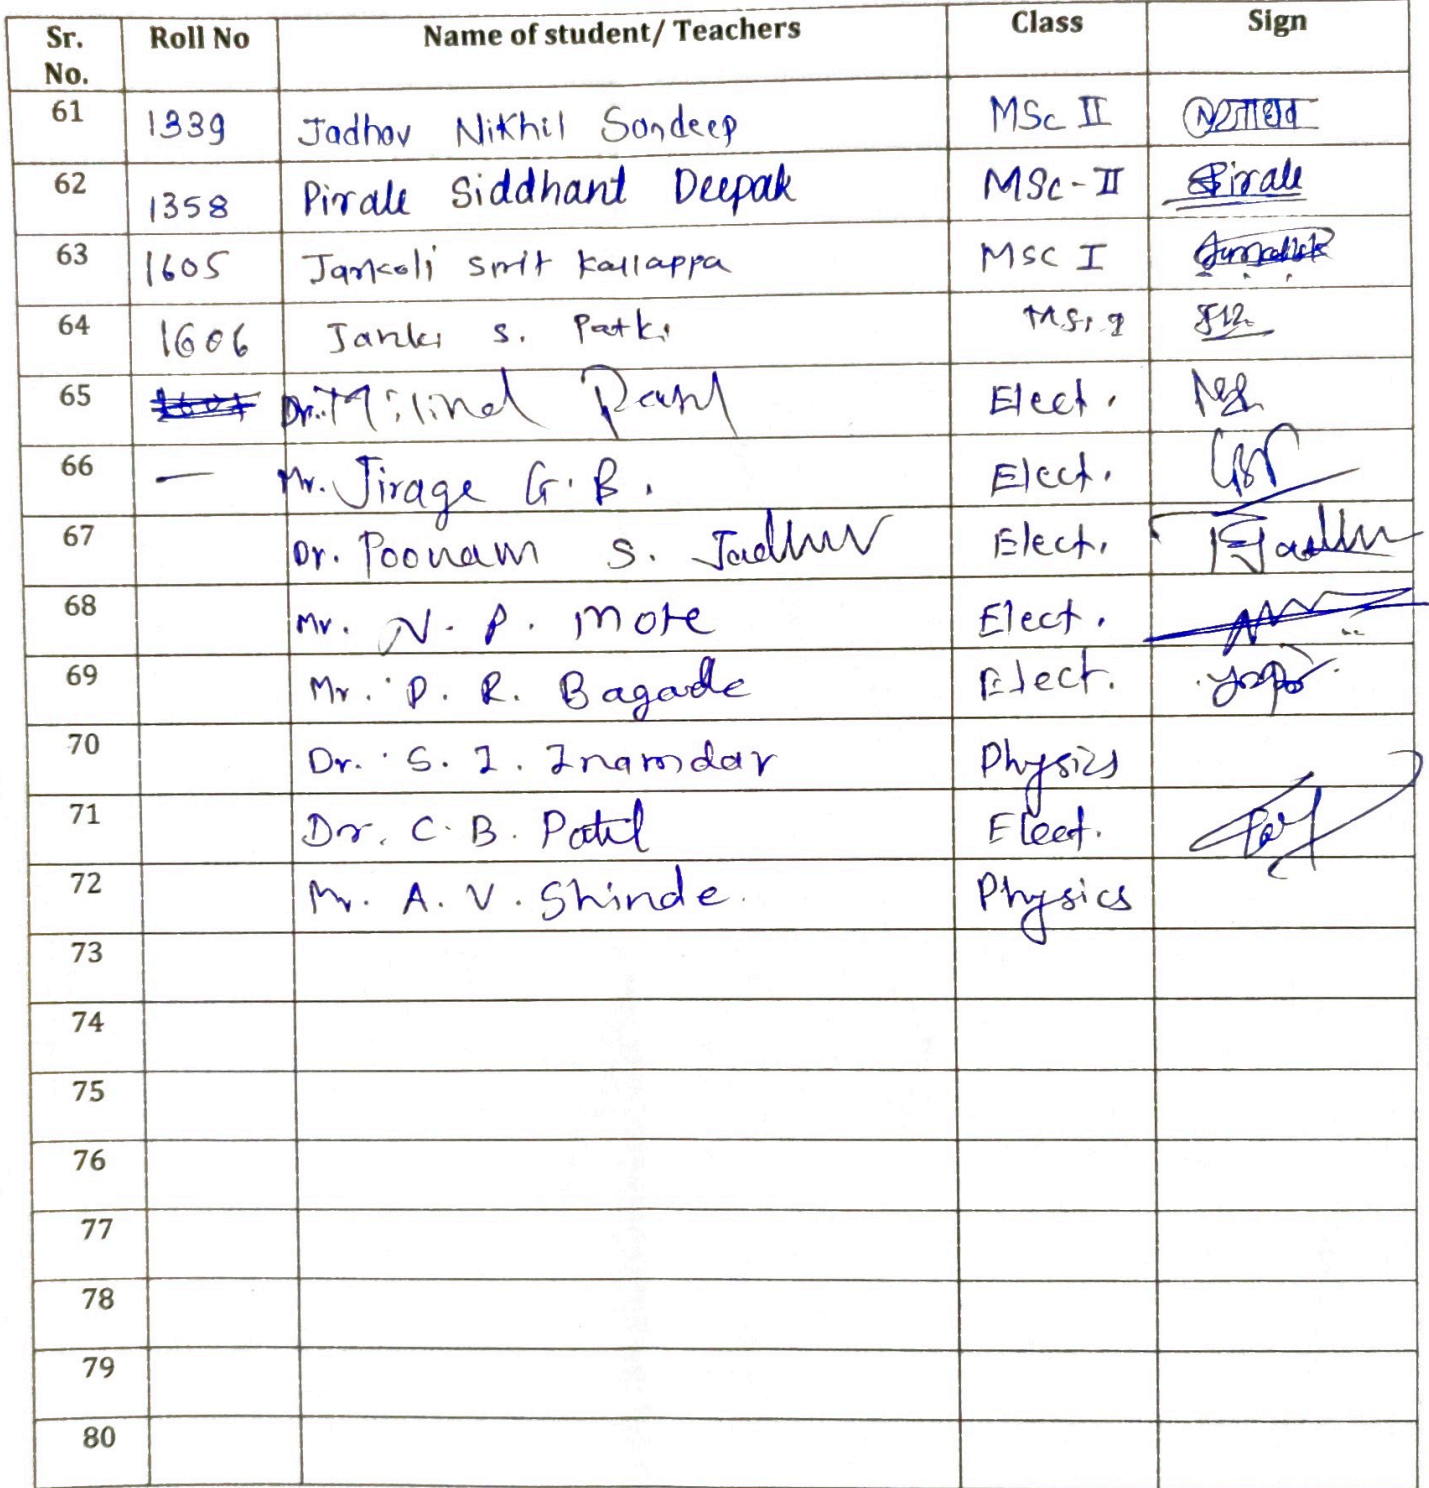 Sr. No. Roll No Name of student/ Teachers Class Sign
61 1339 Jadhav Nikhil Sandeep MSc II
62 1358 Pirale Siddhant Deepak MSc-II Pirale
63 1605 Jankoli Smit Kallappa MSC I
64 1606 Janki s. Patki
65 Dr. Milind Elect.
66 — Mr. Jirage G.B. Elect.
67 Dr. Poonam S. Jadhav Elect.
68 Mr. N. P. More Elect.
69 Mr. P. R. Bagade Elect.
70 Dr. S. I. Inamdar Physics
71 Dr. C. B. Patil Elect.
72 Mr. A. V. Shinde. Physics
73
74
75
76
77
78
79
80